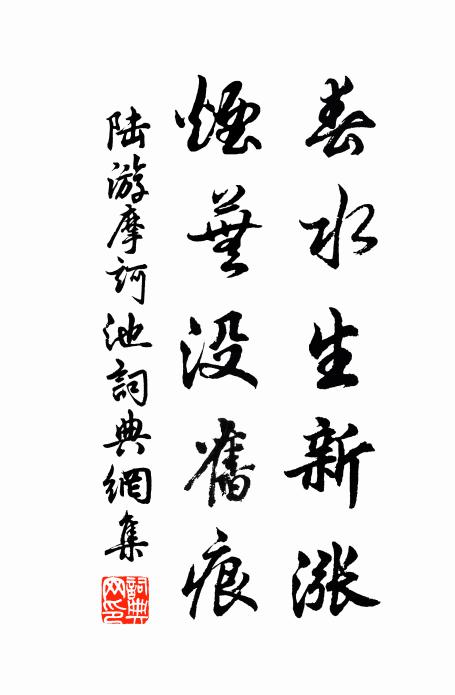 春水生新漲
煙蕪没舊痕
陸游摩訶池詞典網集
詞典網印